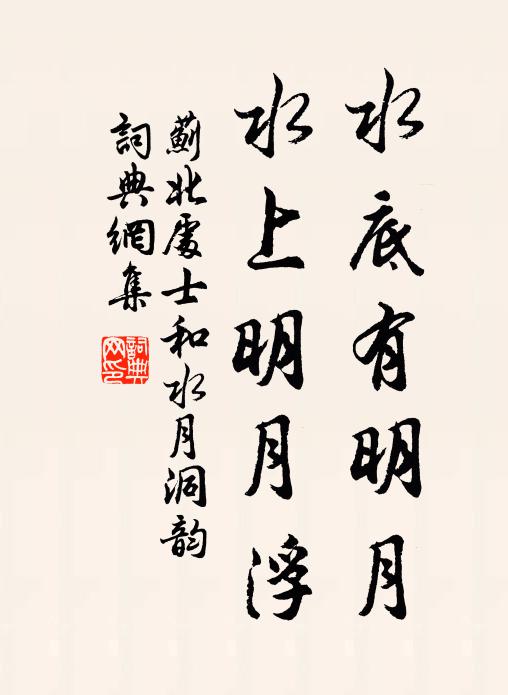 水底有明月
水上明月浮
薊北處士和水月洞韵
詞典網集
詞典網印